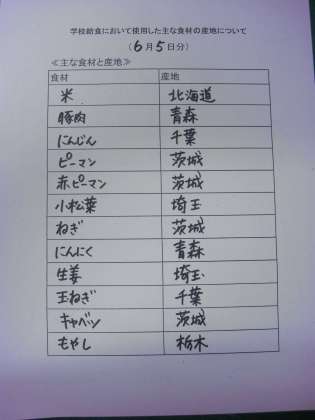 学校給食において使用した主な食材の産地について
（6月5日分）
≪主な食材と産地≫
食材 産地
米 北海道
豚肉 青森
にんじん 千葉
ピーマン 茨城
赤ピーマン 茨城
小松葉 埼玉
ねぎ 茨城
にんにく 青森
生姜 埼玉
玉ねぎ 千葉
キャベツ 茨城
もやし 栃木